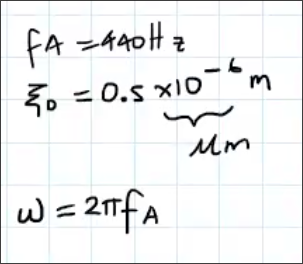 fA = 440Hz
ξ₀ = 0.5 × 10⁻⁶ m
μm
ω = 2πfA